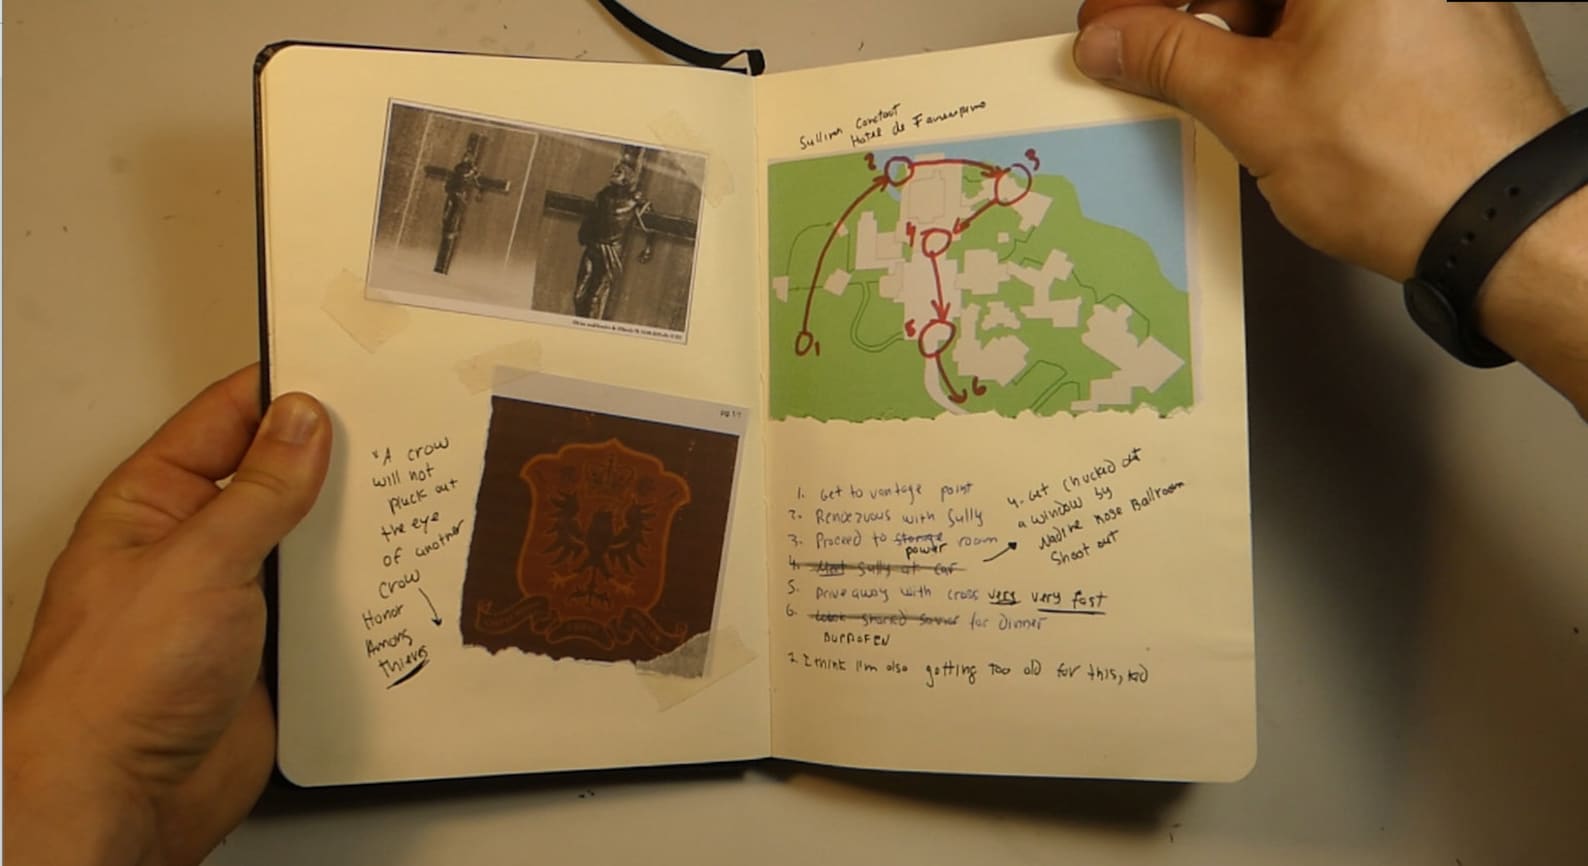 "A crow
will not
pluck out
the eye
of another
crow
Honor
Among
thieves
pg. 1/1
Sullivan Contact
Hotel de
2
3
4
5
1
6
1. Get to vantage point
2. Rendezvous with Sully
3. Proceed to storage room
power
4. Meet Sully at car
4. Get chucked out
a window by
Nadine Ross Ballroom
Shoot out
5. Drive away with cross very very fast
6. for Dinner
7. I think I'm also getting too old for this, kid